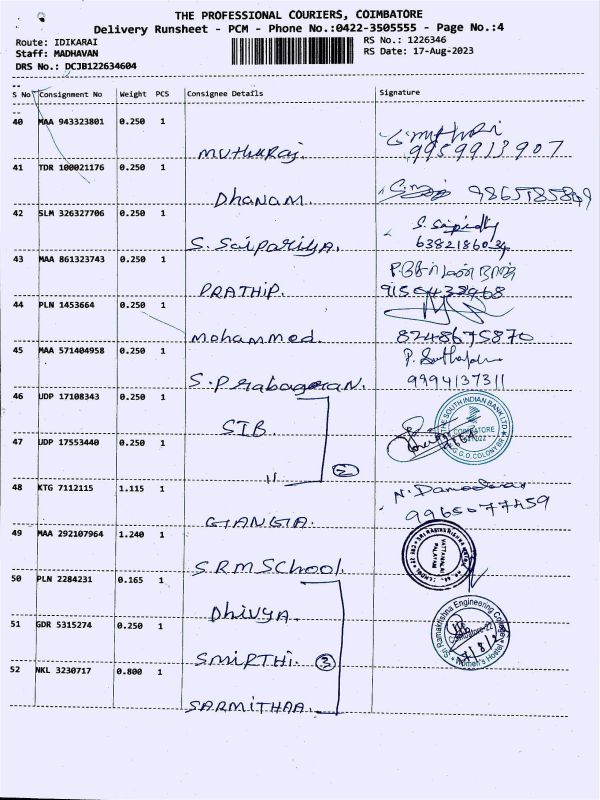 THE PROFESSIONAL COURIERS, COIMBATORE
Delivery Runsheet - PCM - Phone No.:0422-3505555 - Page No.:4
Route: IDIKARAI
Staff: MADHAVAN
DRS No.: DCJB122634604
RS No.: 1226346
RS Date: 17-Aug-2023
S No Consignment No Weight PCS Consignee Details Signature
40 MAA 943323801 0.250 1
Muthuraj. 9959913907
41 TDR 100021176 0.250 1
Dhanam. 9865785849
42 SLM 326327706 0.250 1
S. Saipariya. 6382186034
43 MAA 861323743 0.250 1
PRATHIP. 9159438968
44 PLN 1453664 0.250 1
Mohammed. 8248675870
45 MAA 571404958 0.250 1
S. Prabagaran. 9994137311
46 UDP 17108343 0.250 1
SIB. THE SOUTH INDIAN BANK LTD
COIMBATORE
G.G.O.COLONY BR
47 UDP 17553440 0.250 1
" 2
48 KTG 7112115 1.115 1
N. Damodaran
GIANGIA. 9965077459
49 MAA 292107964 1.240 1
S.R.M School. VATTAMALAI
PALAYAM
50 PLN 2284231 0.165 1
Dhivya. Sri Ramakrishna Engineering College
Coimbatore-22
Women's Hostel
51 GDR 5315274 0.250 1
SMIRTHI. 3
52 NKL 3230717 0.800 1
SARMITHAA.